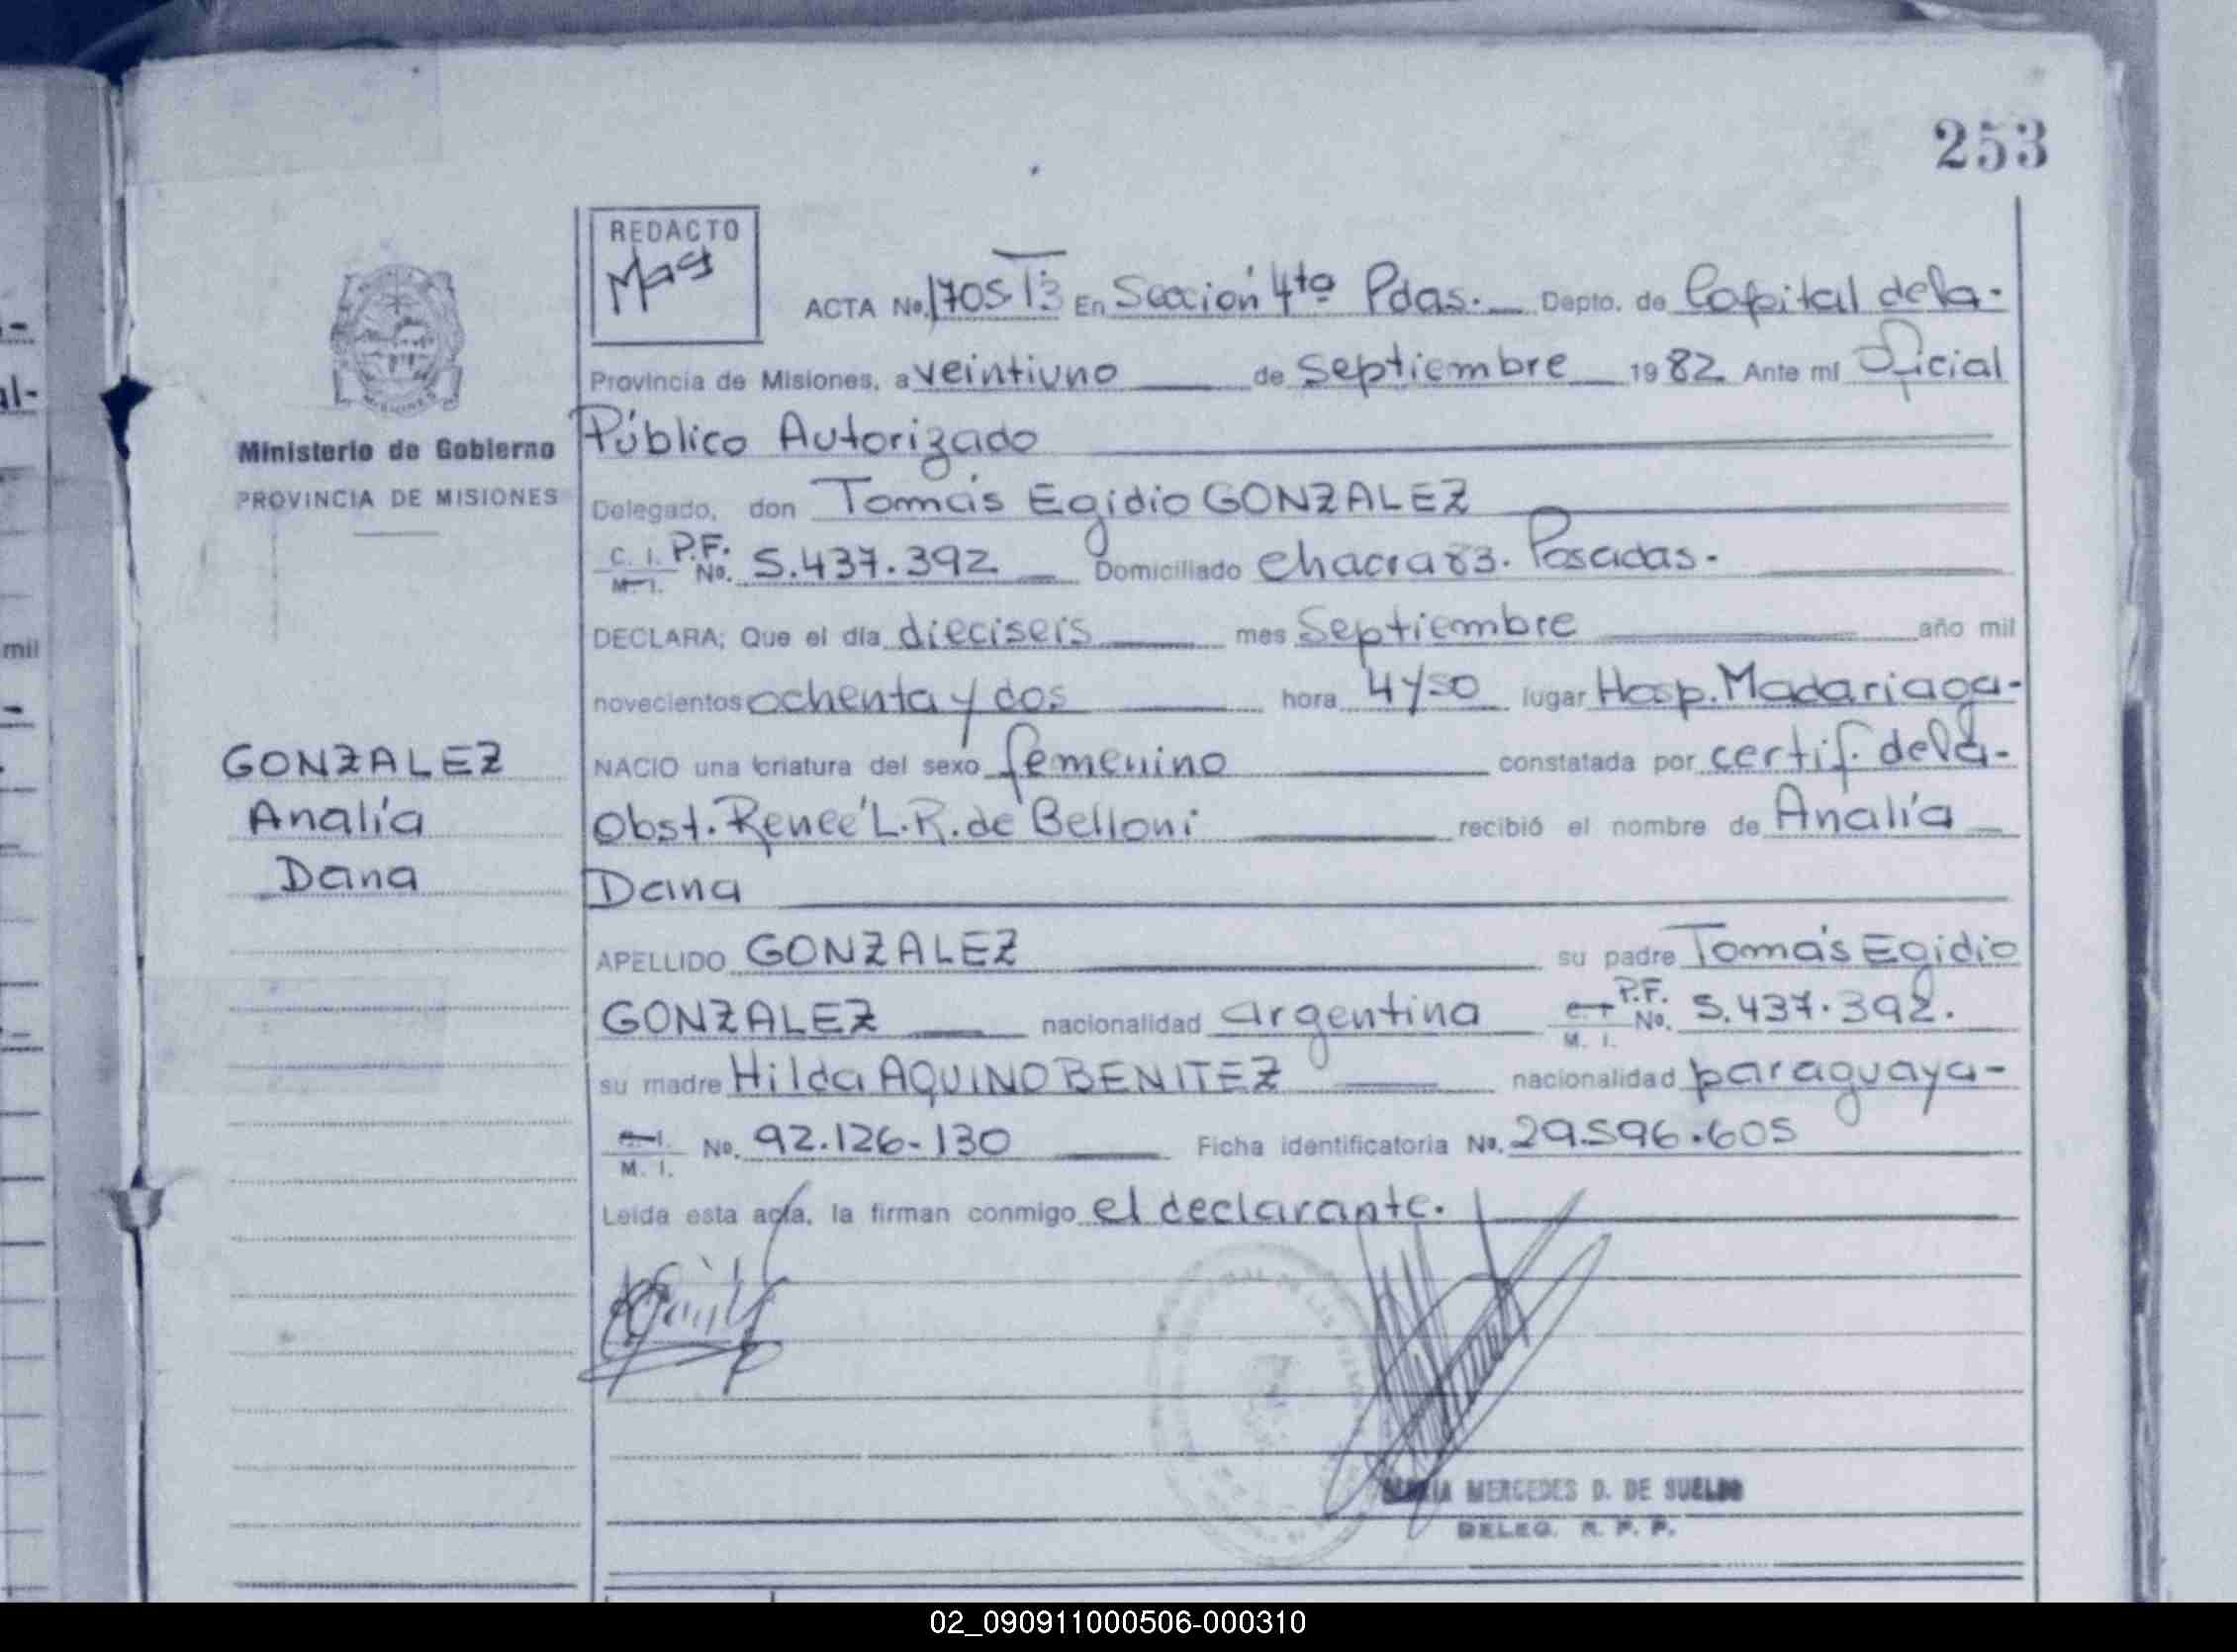 253
REDACTO
ACTA No. 1705 T3 En Sección 4ta Pdas. Depto. de Capital de la-
Provincia de Misiones, a veintiuno de Septiembre 1982 Ante mi Oficial
Público Autorizado
Ministerio de Gobierno
PROVINCIA DE MISIONES
Delegado, don Tomás Egidio GONZALEZ
C. I. P.F. M. I. No. 5.437.392 Domiciliado chacra 83. Posadas.
DECLARA; Que el día dieciseis mes Septiembre año mil
novecientos ochenta y dos hora 4 y 50 lugar Hosp. Madariaga-
GONZALEZ
NACIO una criatura del sexo femenino constatada por certif. de la-
Analía
Obst. Reneé L. R. de Belloni recibió el nombre de Analía
Dana
Dana
APELLIDO GONZALEZ su padre Tomás Egidio
GONZALEZ nacionalidad argentina P.F. M. I. No. 5.437.392.
su madre Hilda AQUINO BENITEZ nacionalidad paraguaya-
M. I. No. 92.126-130 Ficha identificatoria No. 29.596.605
Leida esta acta, la firman conmigo el declarante.
MERCEDES D. DE SUELDO
DELEG. R. P. P.
mil
02_090911000506-000310